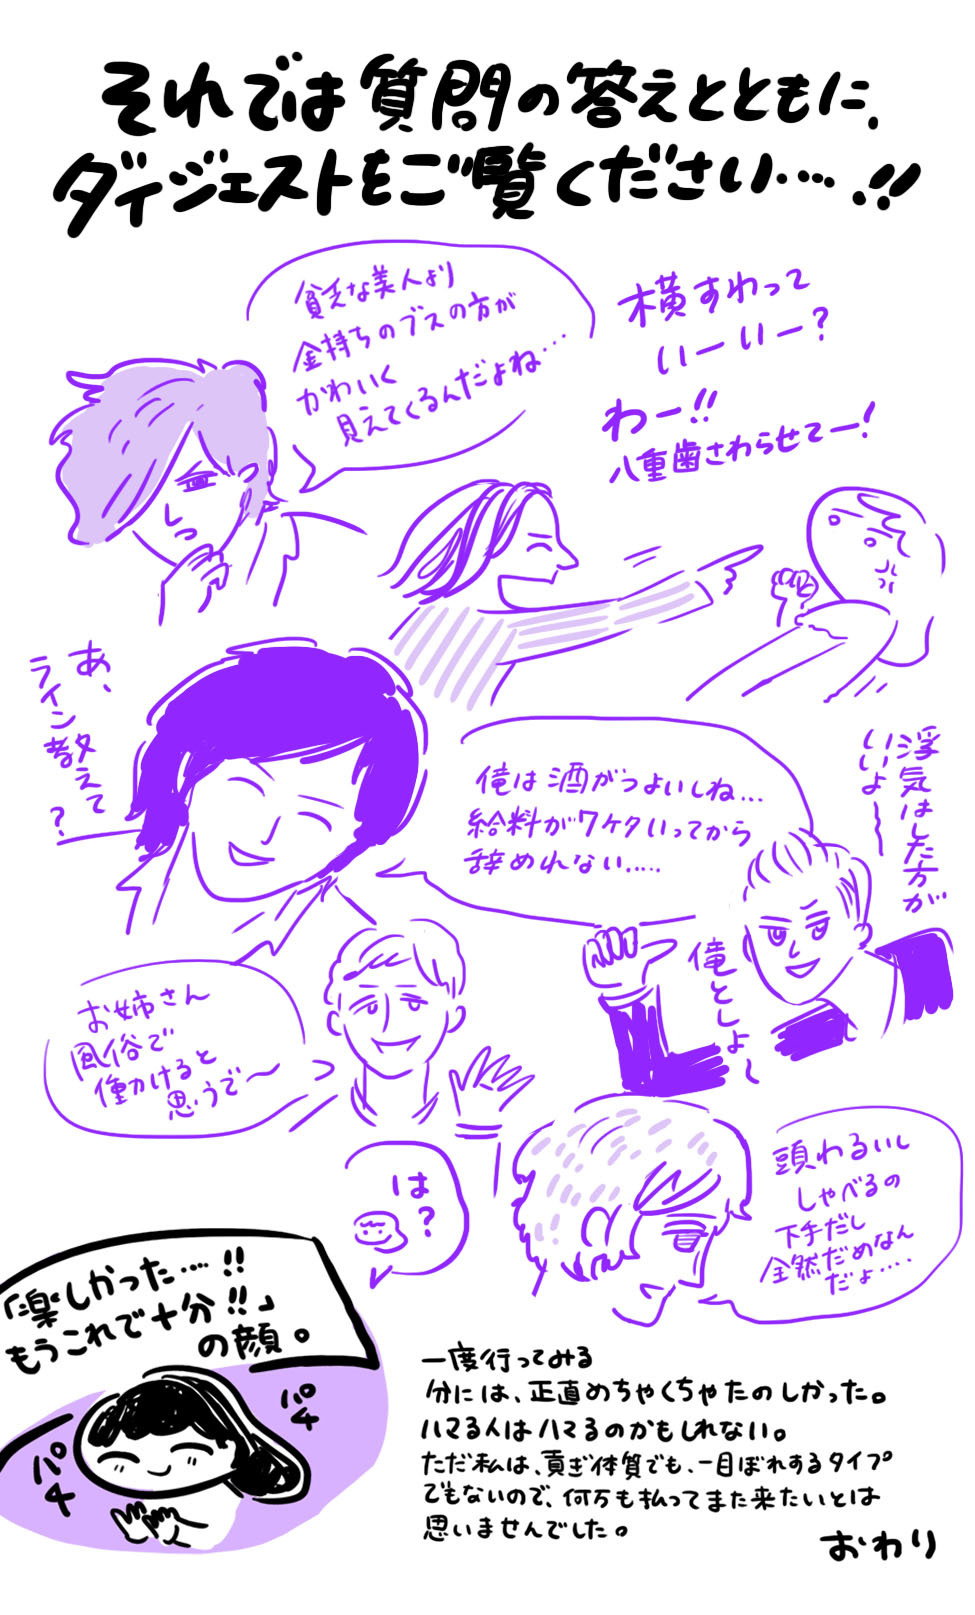 それでは質問の答えとともに、
ダイジェストをご覧ください‥‥.!!
貧乏な美人より
金持ちのブスの方が
かわいく
見えてくるんだよね…
横すわって
いーいー?
わー!!
八重歯さわらせてー!
あ、
ライン教えて
?
俺は酒がつよいしね…
給料が7ケタいってから
辞めれない‥…
浮気はした方が
いいよ〜
俺としよ〜
お姉さん
風俗で
働けると
思うで〜
は?
頭わるいし
しゃべるの
下手だし
全然だめなん
だよ‥‥
「楽しかった‥‥!!
もうこれで十分!!」
の顔。
パチ
パチ
一度行ってみる
分には、正直めちゃくちゃたのしかった。
ハマる人はハマるのかもしれない。
ただ私は、貢ぎ体質でも、一目ぼれするタイプ
でもないので、何万も払ってまた来たいとは
思いませんでした。
おわり